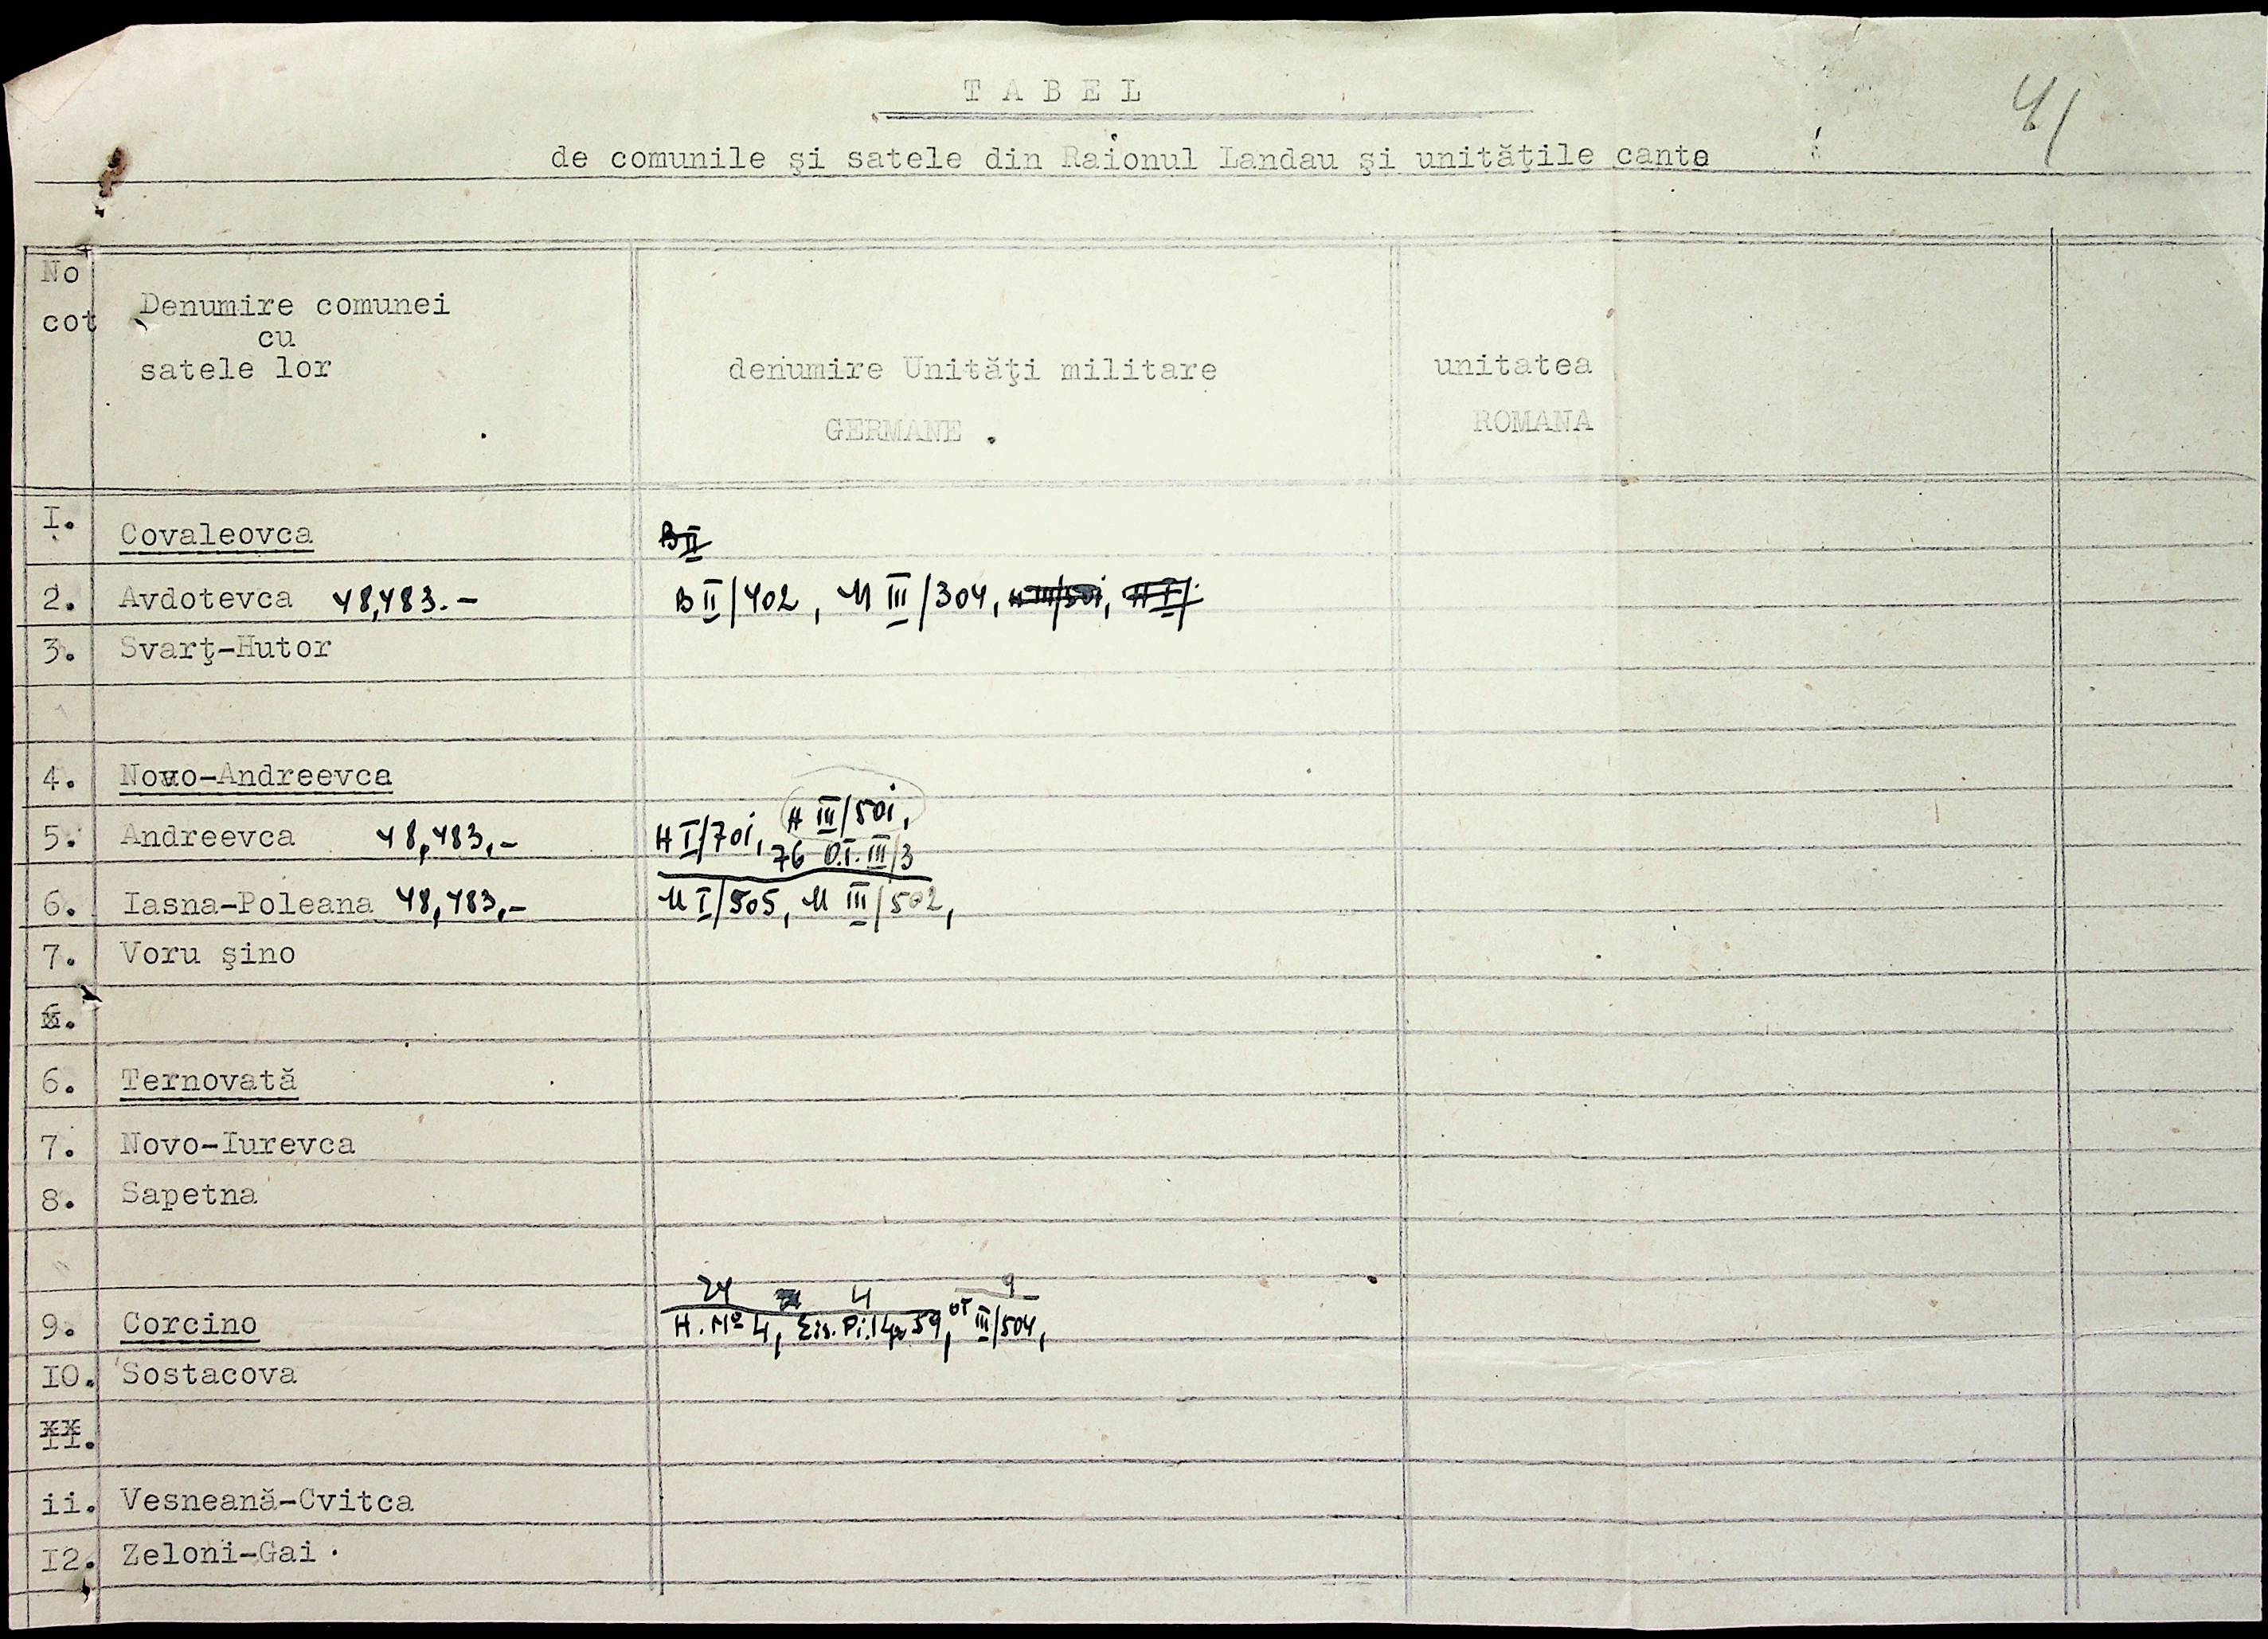 41
T A B E L
de comunile şi satele din Raionul Landau şi unităţile canto
No
cot
Denumire comunei
cu
satele lor
denumire Unităţi militare
GERMANE .
unitatea
ROMANA
I. Covaleovca B II
2. Avdotevca 48,483.- B II/402, M III/304,
3. Svarţ-Hutor
4. Novo-Andreevca
5. Andreevca 48,483,- H I/70i, H III/50i,
76 O.T. III/3
6. Iasna-Poleana 48,483,- M I/505, M III/502,
7. Voru şino
6.
6. Ternovată
7. Novo-Iurevca
8. Sapetna
24 4 9
9. Corcino H. No 4, Eis. Pi. 59, OT III/504,
IO. Sostacova
II.
ii. Vesneană-Cvitca
I2. Zeloni-Gai .